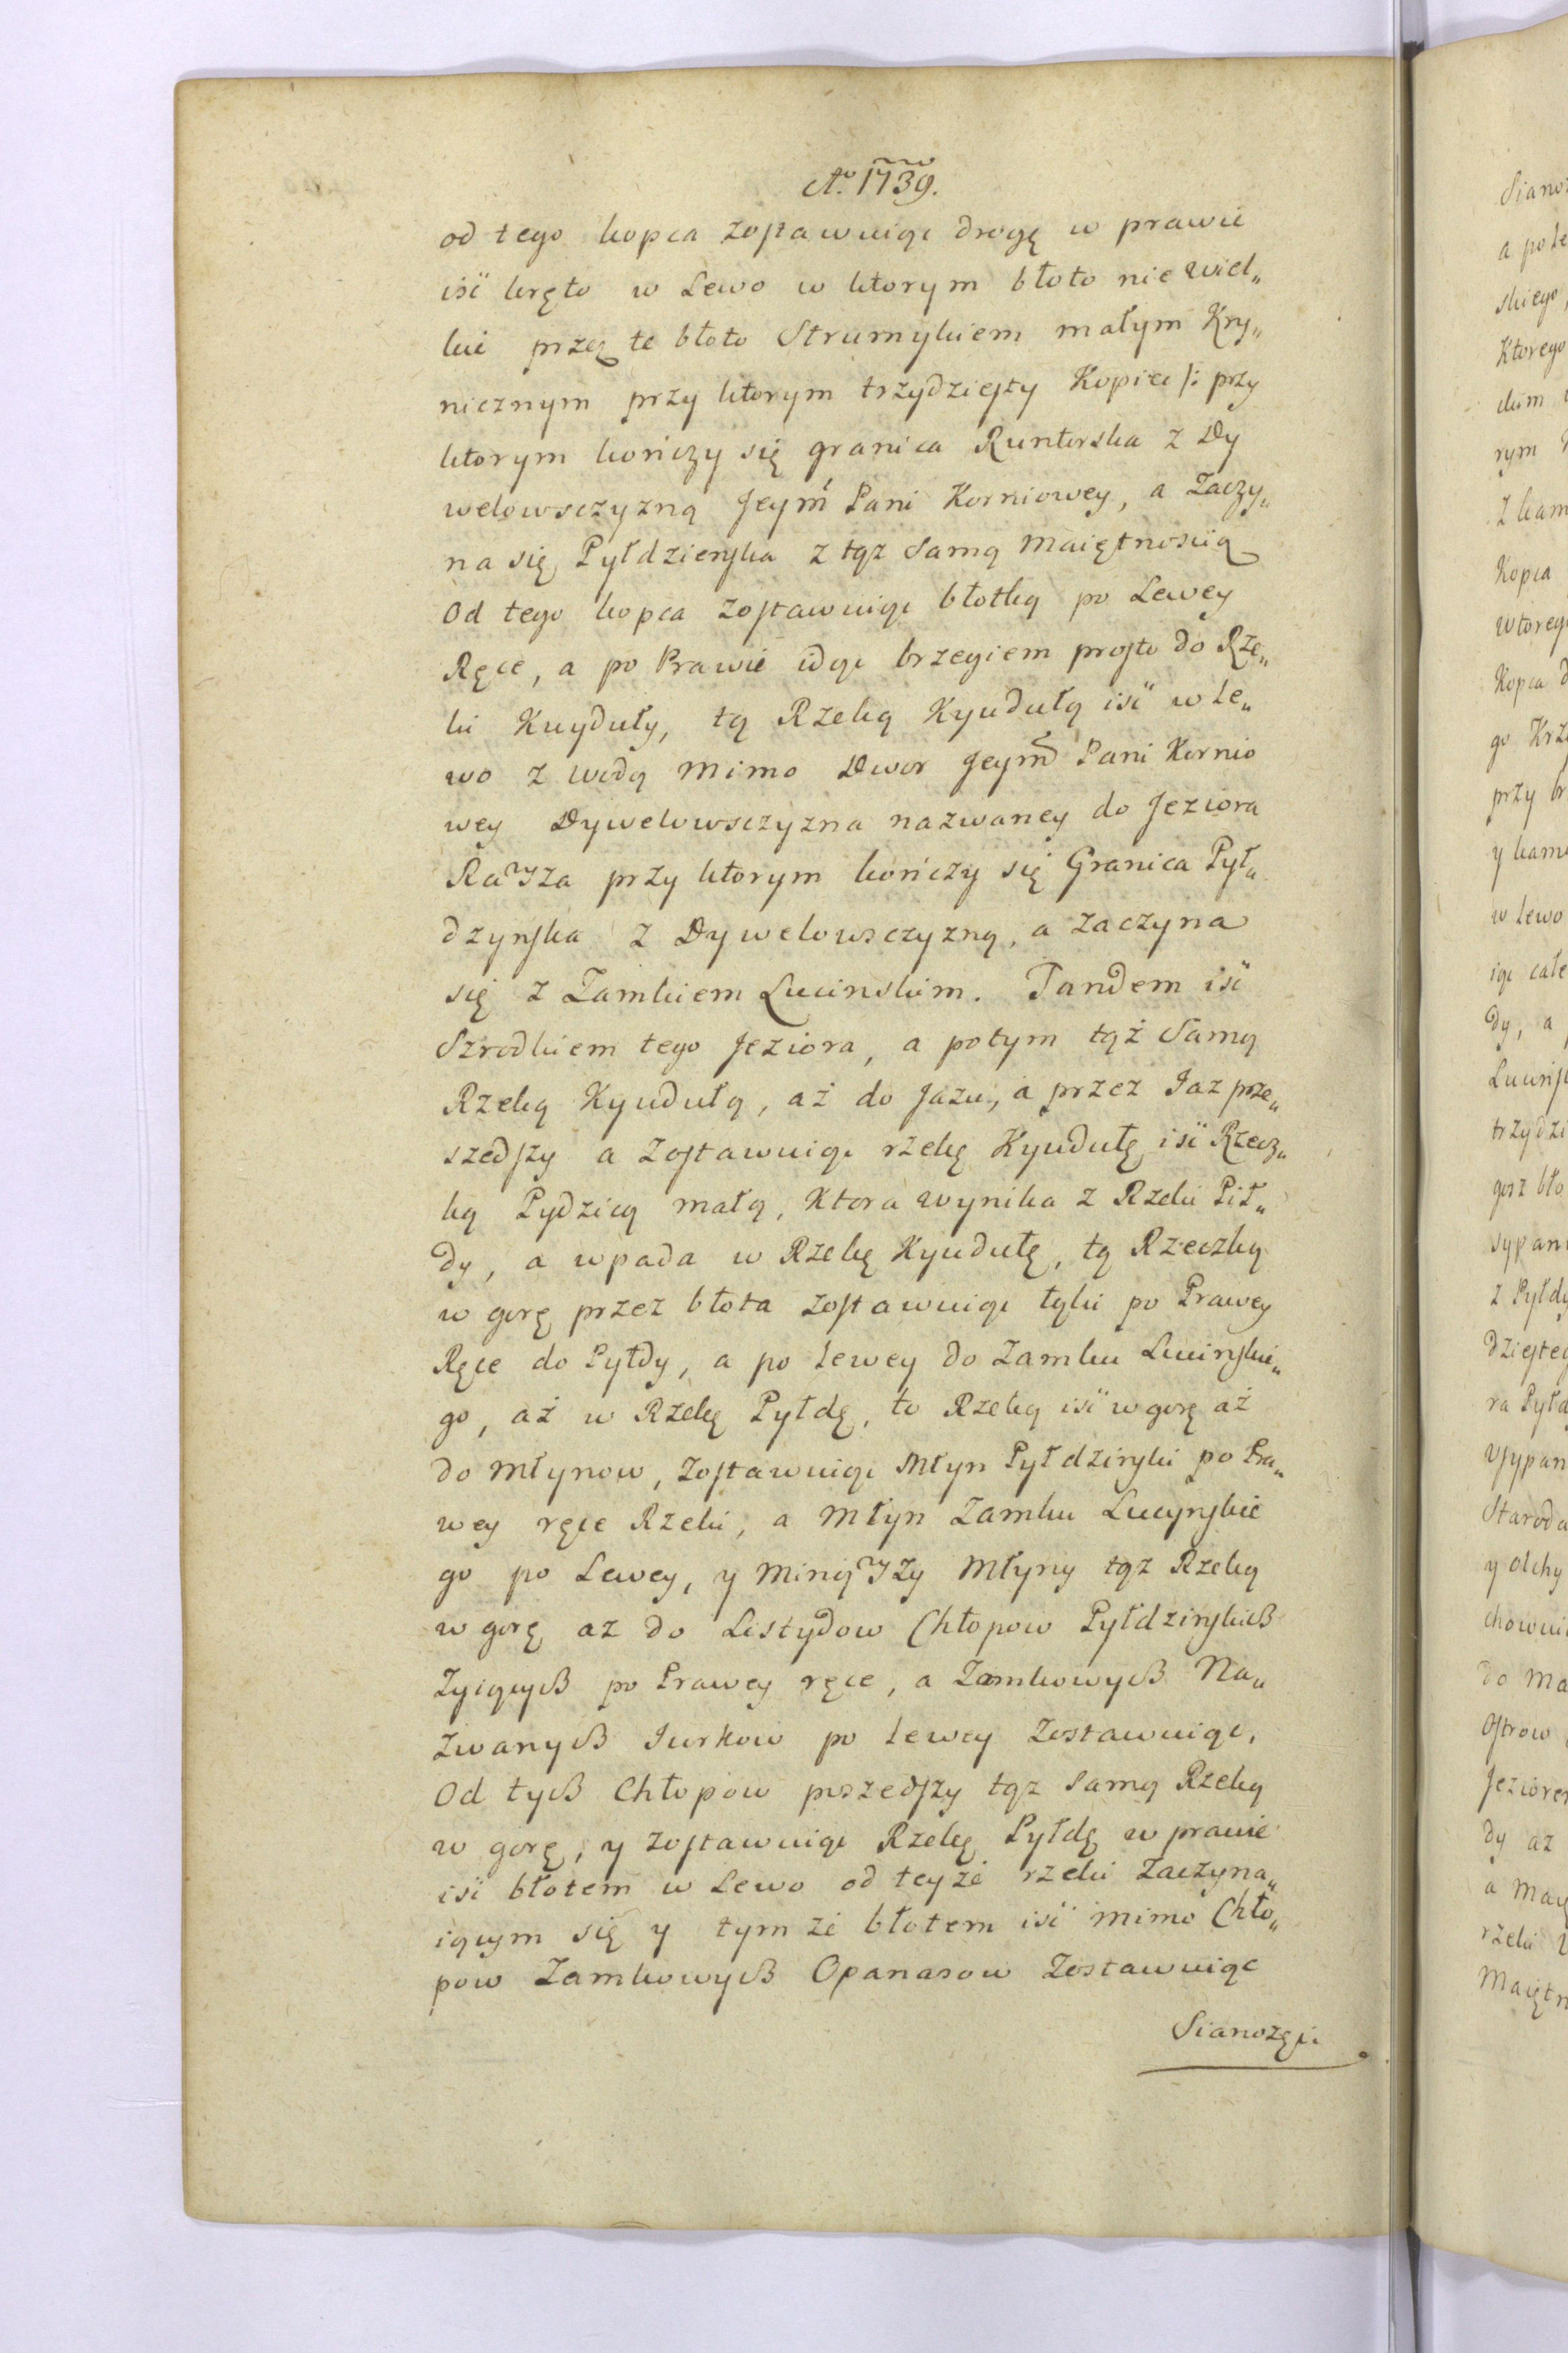 Ao. 1739.
od tego kopca zostawuiąc drogę w prawie
iść kręto w Lewo w ktorym błoto nie wiel„
kie przez te błoto Strumykiem małym Kry„
nicznym przy ktorym trzydziesty Kopiec /: przy
ktorym kończy się granica Runtorska z Dy
welowsczyzną Jeym Pani Korniowey, a Zaczy„
na się Pyłdzienska z tąz Samą Maiętnoscią
Od tego kopca zostawuiąc błotką po Lewey
Ręce, a po Prawie idąc brzegiem prosto do Rze„
ki Kuyduły, tą Rzeką Kyudułą iść w Le„
wo z wodą mimo Dwor Jeym Pani Kornio
wey Dywelowsczyzna nazwaney do Jeziora
Rasza przy ktorym kończy się Granica Pył„
dzynska z Dywelowsczyzną, a zaczyna
się z Zamkiem Lucinskim. Tandem iść
Szrodkiem tego Jeziora, a potym tąż Samą
Rzeką Kyudułą, aż do Jazu, a przez Jaz prze„
szedszy a zostawuiąc rzekę Kyudułę iść Rzecz„
ką Pydzicą małą, Ktora wynika z Rzeki Pił„
dy, a wpada w Rzekę Kyudułę, tą Rzeczką
w gorę przez błota zostawuiąc łąki po Prawey
Ręce do Pyłdy, a po Lewey do Zamku Lucinskie„
go, aż w Rzekę Pyłdę, to Rzeką iść w gorę aż
do Młynow, zostawuiąc Młyn Pyłdzinski po Pra„
wey ręce Rzeki, a Młyn Zamku Lucynskie
go po Lewey, y minąszy Młyny tąz Rzeką
w gorę az do Listydow Chłopow Pyłdzinskich
Zyiących po Prawey ręce, a Zamkowych Na„
zwanych Jurkow po Lewey Zostawuiąc,
Od tych Chłopow poszedszy tąz Samą Rzeką
w gorę, y zostawuiąc Rzekę Pyłdę w prawie
iść błotem w Lewo od teyże rzeki Zaczyna„
iącym się y tym że błotem iść mimo Chło„
pow Zamkowych Opanasow Zostawuiąc
Sianozęci